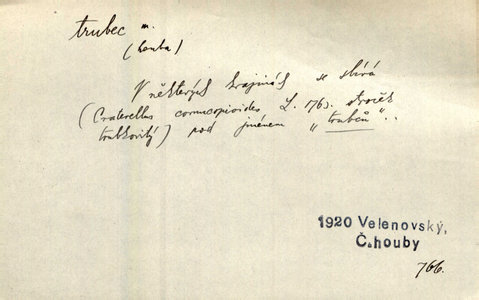 trubec m.
(houba)
V některých krajinách se sbírá
(Craterellus cornucopioides L. 1763. stroček
trubkovitý) pod jménem „trubců“..
1920 Velenovský,
Č.houby
766.